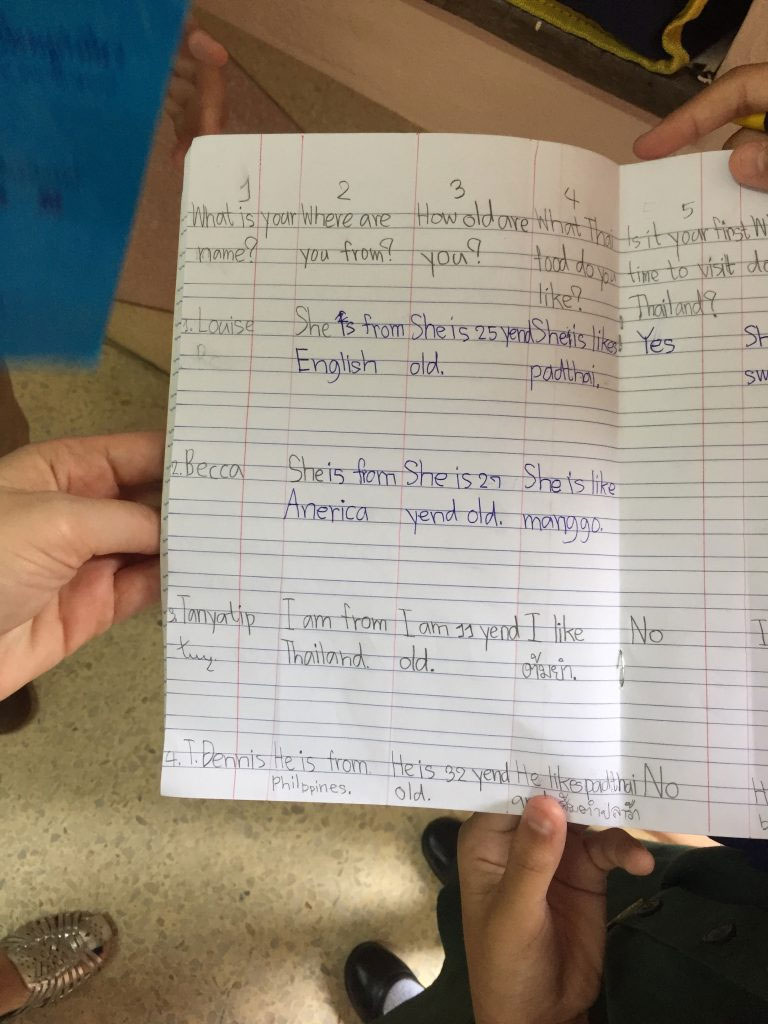 1 2 3 4 5
What is your Where are How old are What Thai Is it your first
name? you from? you? food do you time to visit
like? Thailand?
1. Louise She is from She is 25 yend She is likes Yes
English old. padthai.
2. Becca She is from She is 27 She is like
Anerica yend old. manggo.
3. Tanyatip I am from I am 11 yend I like No I
Thailand. old.
4. T. Dennis He is from He is 32 yend He likes padthai No
Philppines. old.